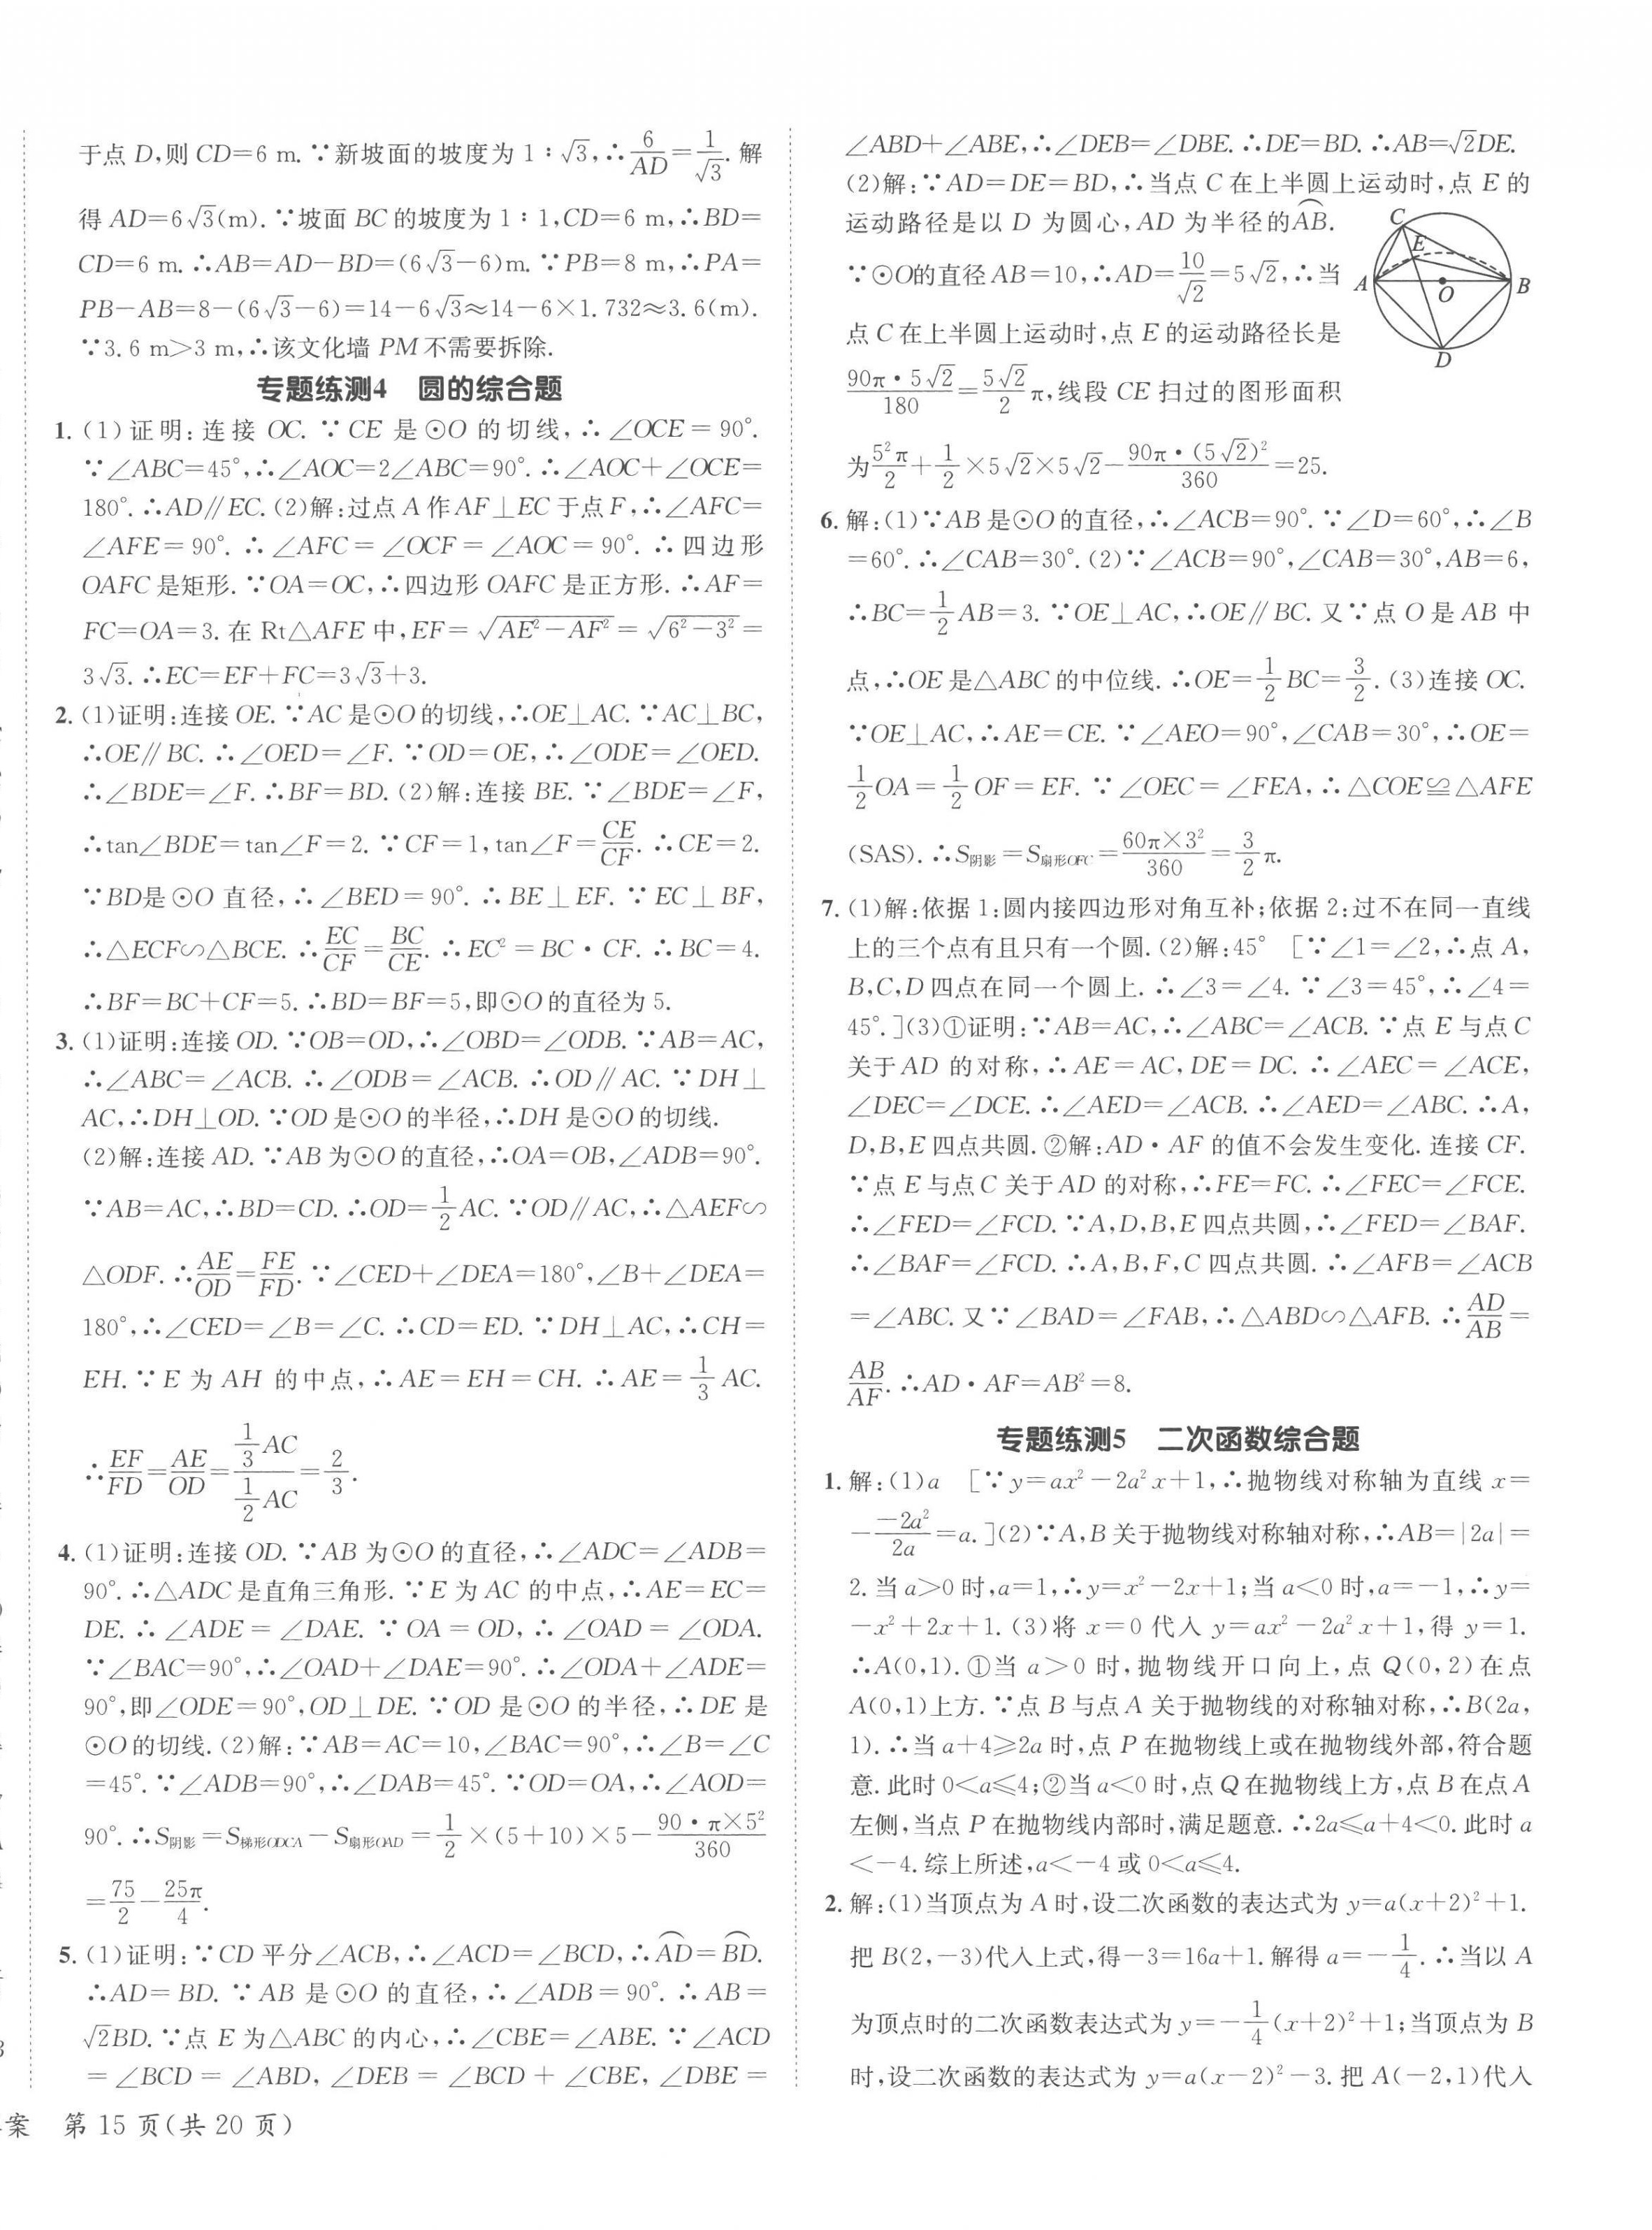 于点 D,则 CD=6 m. ∵新坡面的坡度为 1∶√3,∴6/AD=1/√3. 解
得 AD=6√3(m). ∵坡面 BC 的坡度为 1∶1,CD=6 m,∴BD=
CD=6 m. ∴AB=AD-BD=(6√3-6)m. ∵PB=8 m,∴PA=
PB-AB=8-(6√3-6)=14-6√3≈14-6×1.732≈3.6(m).
∵3.6 m>3 m,∴该文化墙 PM 不需要拆除.
专题练测4 圆的综合题
1. (1)证明:连接 OC. ∵CE 是⊙O 的切线,∴∠OCE=90°.
∵∠ABC=45°,∴∠AOC=2∠ABC=90°. ∴∠AOC+∠OCE=
180°. ∴AD∥EC. (2)解:过点 A 作 AF⊥EC 于点 F,∴∠AFC=
∠AFE=90°. ∴∠AFC=∠OCF=∠AOC=90°. ∴四边形
OAFC 是矩形. ∵OA=OC,∴四边形 OAFC 是正方形. ∴AF=
FC=OA=3. 在 Rt△AFE 中,EF=√(AE²-AF²)=√(6²-3²)=
3√3. ∴EC=EF+FC=3√3+3.
2. (1)证明:连接 OE. ∵AC 是⊙O 的切线,∴OE⊥AC. ∵AC⊥BC,
∴OE∥BC. ∴∠OED=∠F. ∵OD=OE,∴∠ODE=∠OED.
∴∠BDE=∠F. ∴BF=BD. (2)解:连接 BE. ∵∠BDE=∠F,
∴tan∠BDE=tan∠F=2. ∵CF=1,tan∠F=CE/CF. ∴CE=2.
∵BD是⊙O 直径,∴∠BED=90°. ∴BE⊥EF. ∵EC⊥BF,
∴△ECF∽△BCE. ∴EC/CF=BC/CE. ∴EC²=BC·CF. ∴BC=4.
∴BF=BC+CF=5. ∴BD=BF=5,即⊙O 的直径为 5.
3. (1)证明:连接 OD. ∵OB=OD,∴∠OBD=∠ODB. ∵AB=AC,
∴∠ABC=∠ACB. ∴∠ODB=∠ACB. ∴OD∥AC. ∵DH⊥
AC,∴DH⊥OD. ∵OD 是⊙O 的半径,∴DH 是⊙O 的切线.
(2)解:连接 AD. ∵AB 为⊙O 的直径,∴OA=OB,∠ADB=90°.
∵AB=AC,∴BD=CD. ∴OD=1/2 AC. ∵OD∥AC,∴△AEF∽
△ODF. ∴AE/OD=FE/FD. ∵∠CED+∠DEA=180°,∠B+∠DEA=
180°,∴∠CED=∠B=∠C. ∴CD=ED. ∵DH⊥AC,∴CH=
EH. ∵E 为 AH 的中点,∴AE=EH=CH. ∴AE=1/3 AC.
∴EF/FD=AE/OD=(1/3 AC)/(1/2 AC)=2/3.
4. (1)证明:连接 OD. ∵AB 为⊙O 的直径,∴∠ADC=∠ADB=
90°. ∴△ADC 是直角三角形. ∵E 为 AC 的中点,∴AE=EC=
DE. ∴∠ADE=∠DAE. ∵OA=OD,∴∠OAD=∠ODA.
∵∠BAC=90°,∴∠OAD+∠DAE=90°. ∴∠ODA+∠ADE=
90°,即∠ODE=90°,OD⊥DE. ∵OD 是⊙O 的半径,∴DE 是
⊙O 的切线. (2)解:∵AB=AC=10,∠BAC=90°,∴∠B=∠C
=45°. ∵∠ADB=90°,∴∠DAB=45°. ∵OD=OA,∴∠AOD=
90°. ∴S阴影=S梯形ODCA-S扇形OAD=1/2×(5+10)×5-(90·π×5²)/360
=75/2-25π/4.
5. (1)证明:∵CD 平分∠ACB,∴∠ACD=∠BCD,∴A͡D=B͡D.
∴AD=BD. ∵AB 是⊙O 的直径,∴∠ADB=90°. ∴AB=
√2BD. ∵点 E 为△ABC 的内心,∴∠CBE=∠ABE. ∵∠ACD
=∠BCD=∠ABD,∠DEB=∠BCD+∠CBE,∠DBE=
案 第 15 页(共 20 页)
∠ABD+∠ABE,∴∠DEB=∠DBE. ∴DE=BD. ∴AB=√2DE.
(2)解:∵AD=DE=BD,∴当点 C 在上半圆上运动时,点 E 的
运动路径是以 D 为圆心,AD 为半径的A͡B.
∵⊙O的直径 AB=10,∴AD=10/√2=5√2,∴当
点 C 在上半圆上运动时,点 E 的运动路径长是
(90π·5√2)/180=(5√2)/2 π,线段 CE 扫过的图形面积
为5²π/2+1/2×5√2×5√2-(90π·(5√2)²)/360=25.
C
E
A
O
B
D
6. 解:(1)∵AB 是⊙O 的直径,∴∠ACB=90°. ∵∠D=60°,∴∠B
=60°. ∴∠CAB=30°. (2)∵∠ACB=90°,∠CAB=30°,AB=6,
∴BC=1/2 AB=3. ∵OE⊥AC,∴OE∥BC. 又∵点 O 是 AB 中
点,∴OE 是△ABC 的中位线. ∴OE=1/2 BC=3/2. (3)连接 OC.
∵OE⊥AC,∴AE=CE. ∵∠AEO=90°,∠CAB=30°,∴OE=
1/2 OA=1/2 OF=EF. ∵∠OEC=∠FEA,∴△COE≌△AFE
(SAS). ∴S阴影=S扇形OFC=(60π×3²)/360=3/2 π.
7. (1)解:依据 1:圆内接四边形对角互补;依据 2:过不在同一直线
上的三个点有且只有一个圆. (2)解:45° [∵∠1=∠2,∴点 A,
B,C,D 四点在同一个圆上. ∴∠3=∠4. ∵∠3=45°,∴∠4=
45°. ](3)①证明:∵AB=AC,∴∠ABC=∠ACB. ∵点 E 与点 C
关于 AD 的对称,∴AE=AC,DE=DC. ∴∠AEC=∠ACE,
∠DEC=∠DCE. ∴∠AED=∠ACB. ∴∠AED=∠ABC. ∴A,
D,B,E 四点共圆. ②解:AD·AF 的值不会发生变化. 连接 CF.
∵点 E 与点 C 关于 AD 的对称,∴FE=FC. ∴∠FEC=∠FCE.
∴∠FED=∠FCD. ∵A,D,B,E 四点共圆,∴∠FED=∠BAF.
∴∠BAF=∠FCD. ∴A,B,F,C 四点共圆. ∴∠AFB=∠ACB
=∠ABC. 又∵∠BAD=∠FAB,∴△ABD∽△AFB. ∴AD/AB=
AB/AF. ∴AD·AF=AB²=8.
专题练测5 二次函数综合题
1. 解:(1)a [∵y=ax²-2a²x+1,∴抛物线对称轴为直线 x=
-(-2a²)/2a=a. ](2)∵A,B 关于抛物线对称轴对称,∴AB=|2a|=
2. 当 a>0 时,a=1,∴y=x²-2x+1;当 a<0 时,a=-1,∴y=
-x²+2x+1. (3)将 x=0 代入 y=ax²-2a²x+1,得 y=1.
∴A(0,1). ①当 a>0 时,抛物线开口向上,点 Q(0,2)在点
A(0,1)上方. ∵点 B 与点 A 关于抛物线的对称轴对称,∴B(2a,
1). ∴当 a+4≥2a 时,点 P 在抛物线上或在抛物线外部,符合题
意. 此时 0<a≤4;②当 a<0 时,点 Q 在抛物线上方,点 B 在点 A
左侧,当点 P 在抛物线内部时,满足题意. ∴2a≤a+4<0. 此时 a
<-4. 综上所述,a<-4 或 0<a≤4.
2. 解:(1)当顶点为 A 时,设二次函数的表达式为 y=a(x+2)²+1.
把 B(2,-3)代入上式,得-3=16a+1. 解得 a=-1/4. ∴当以 A
为顶点时的二次函数表达式为 y=-1/4(x+2)²+1;当顶点为 B
时,设二次函数的表达式为 y=a(x-2)²-3. 把 A(-2,1)代入